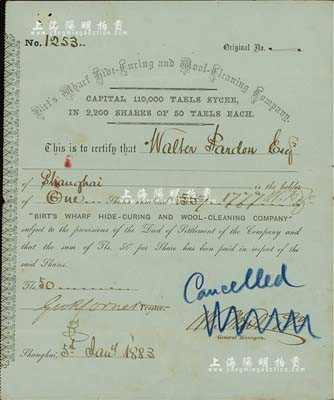 上海陽明拍賣
SHANGHAI YANGMING AUCTION
No. 1253..
Original No.
Birt's Wharf Hide-Curing and Wool-Cleaning Company.
CAPITAL 110,000 TAELS SYCEE,
IN 2,200 SHARES OF 50 TAELS EACH.
This is to certify that Walter Pardon Esq
of Shanghai is the holder
of One 1777
"BIRT'S WHARF HIDE-CURING AND WOOL-CLEANING COMPANY"
subject to the provisions of the Deed of Settlement of the Company and
that the sum of Tls. 50 per Share has been paid in respect of the
said Shares.
Tls. 50
Cancelled
General Managers.
Shanghai, 5th Jany 1883
上海陽明拍賣